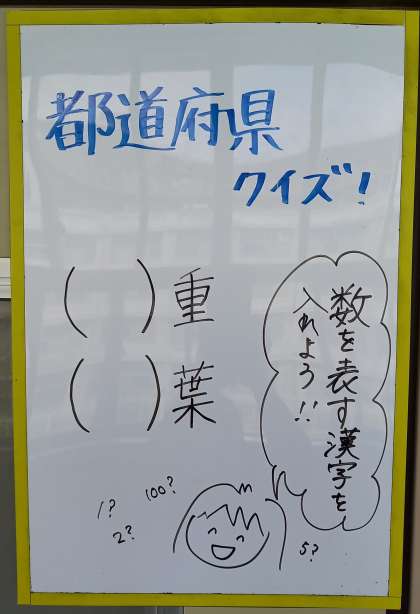 都道府県
クイズ!
( )重
( )葉
数を表す漢字を
入れよう!!
1?
100?
2?
5?